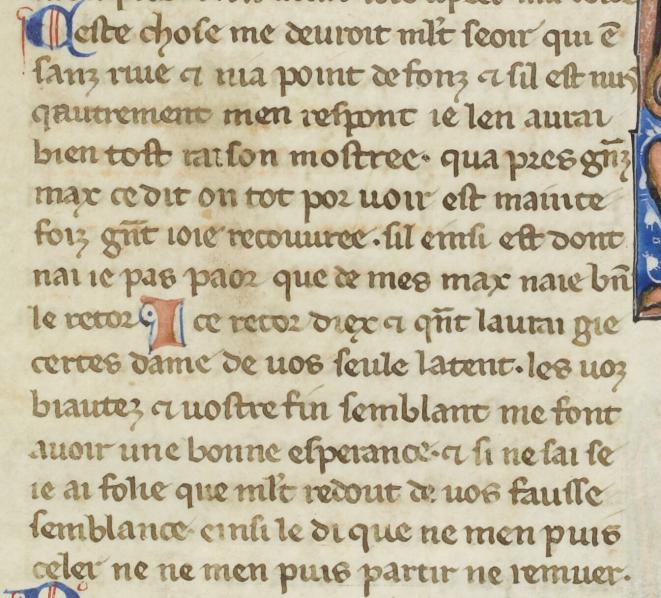 Ceste chose me deuroit ml't seoir qui ē
sanz riue ⁊ nia point de fonz ⁊ sil est nus
qautrement men respont ie len aurai
bien tost raison mostree. qua pres gn̄z
max ce dit on tot por uoir est mainte
foiz gn̄t ioie recouuree. sil einsi est dont
nai ie pas paor que de mes max naie bn̄
le retorꝰ I ce retor diex ⁊ qn̄t laurai gie
certes dame de uos seule latent. les uoz
biautez ⁊ uostre fin semblant me font
auoir une bonne esperance. ⁊ si ne sai se
ie ai folie que ml't redout de uos fausse
semblance einsi le di que ne men puis
celer ne ne men puis partir ne remuer.